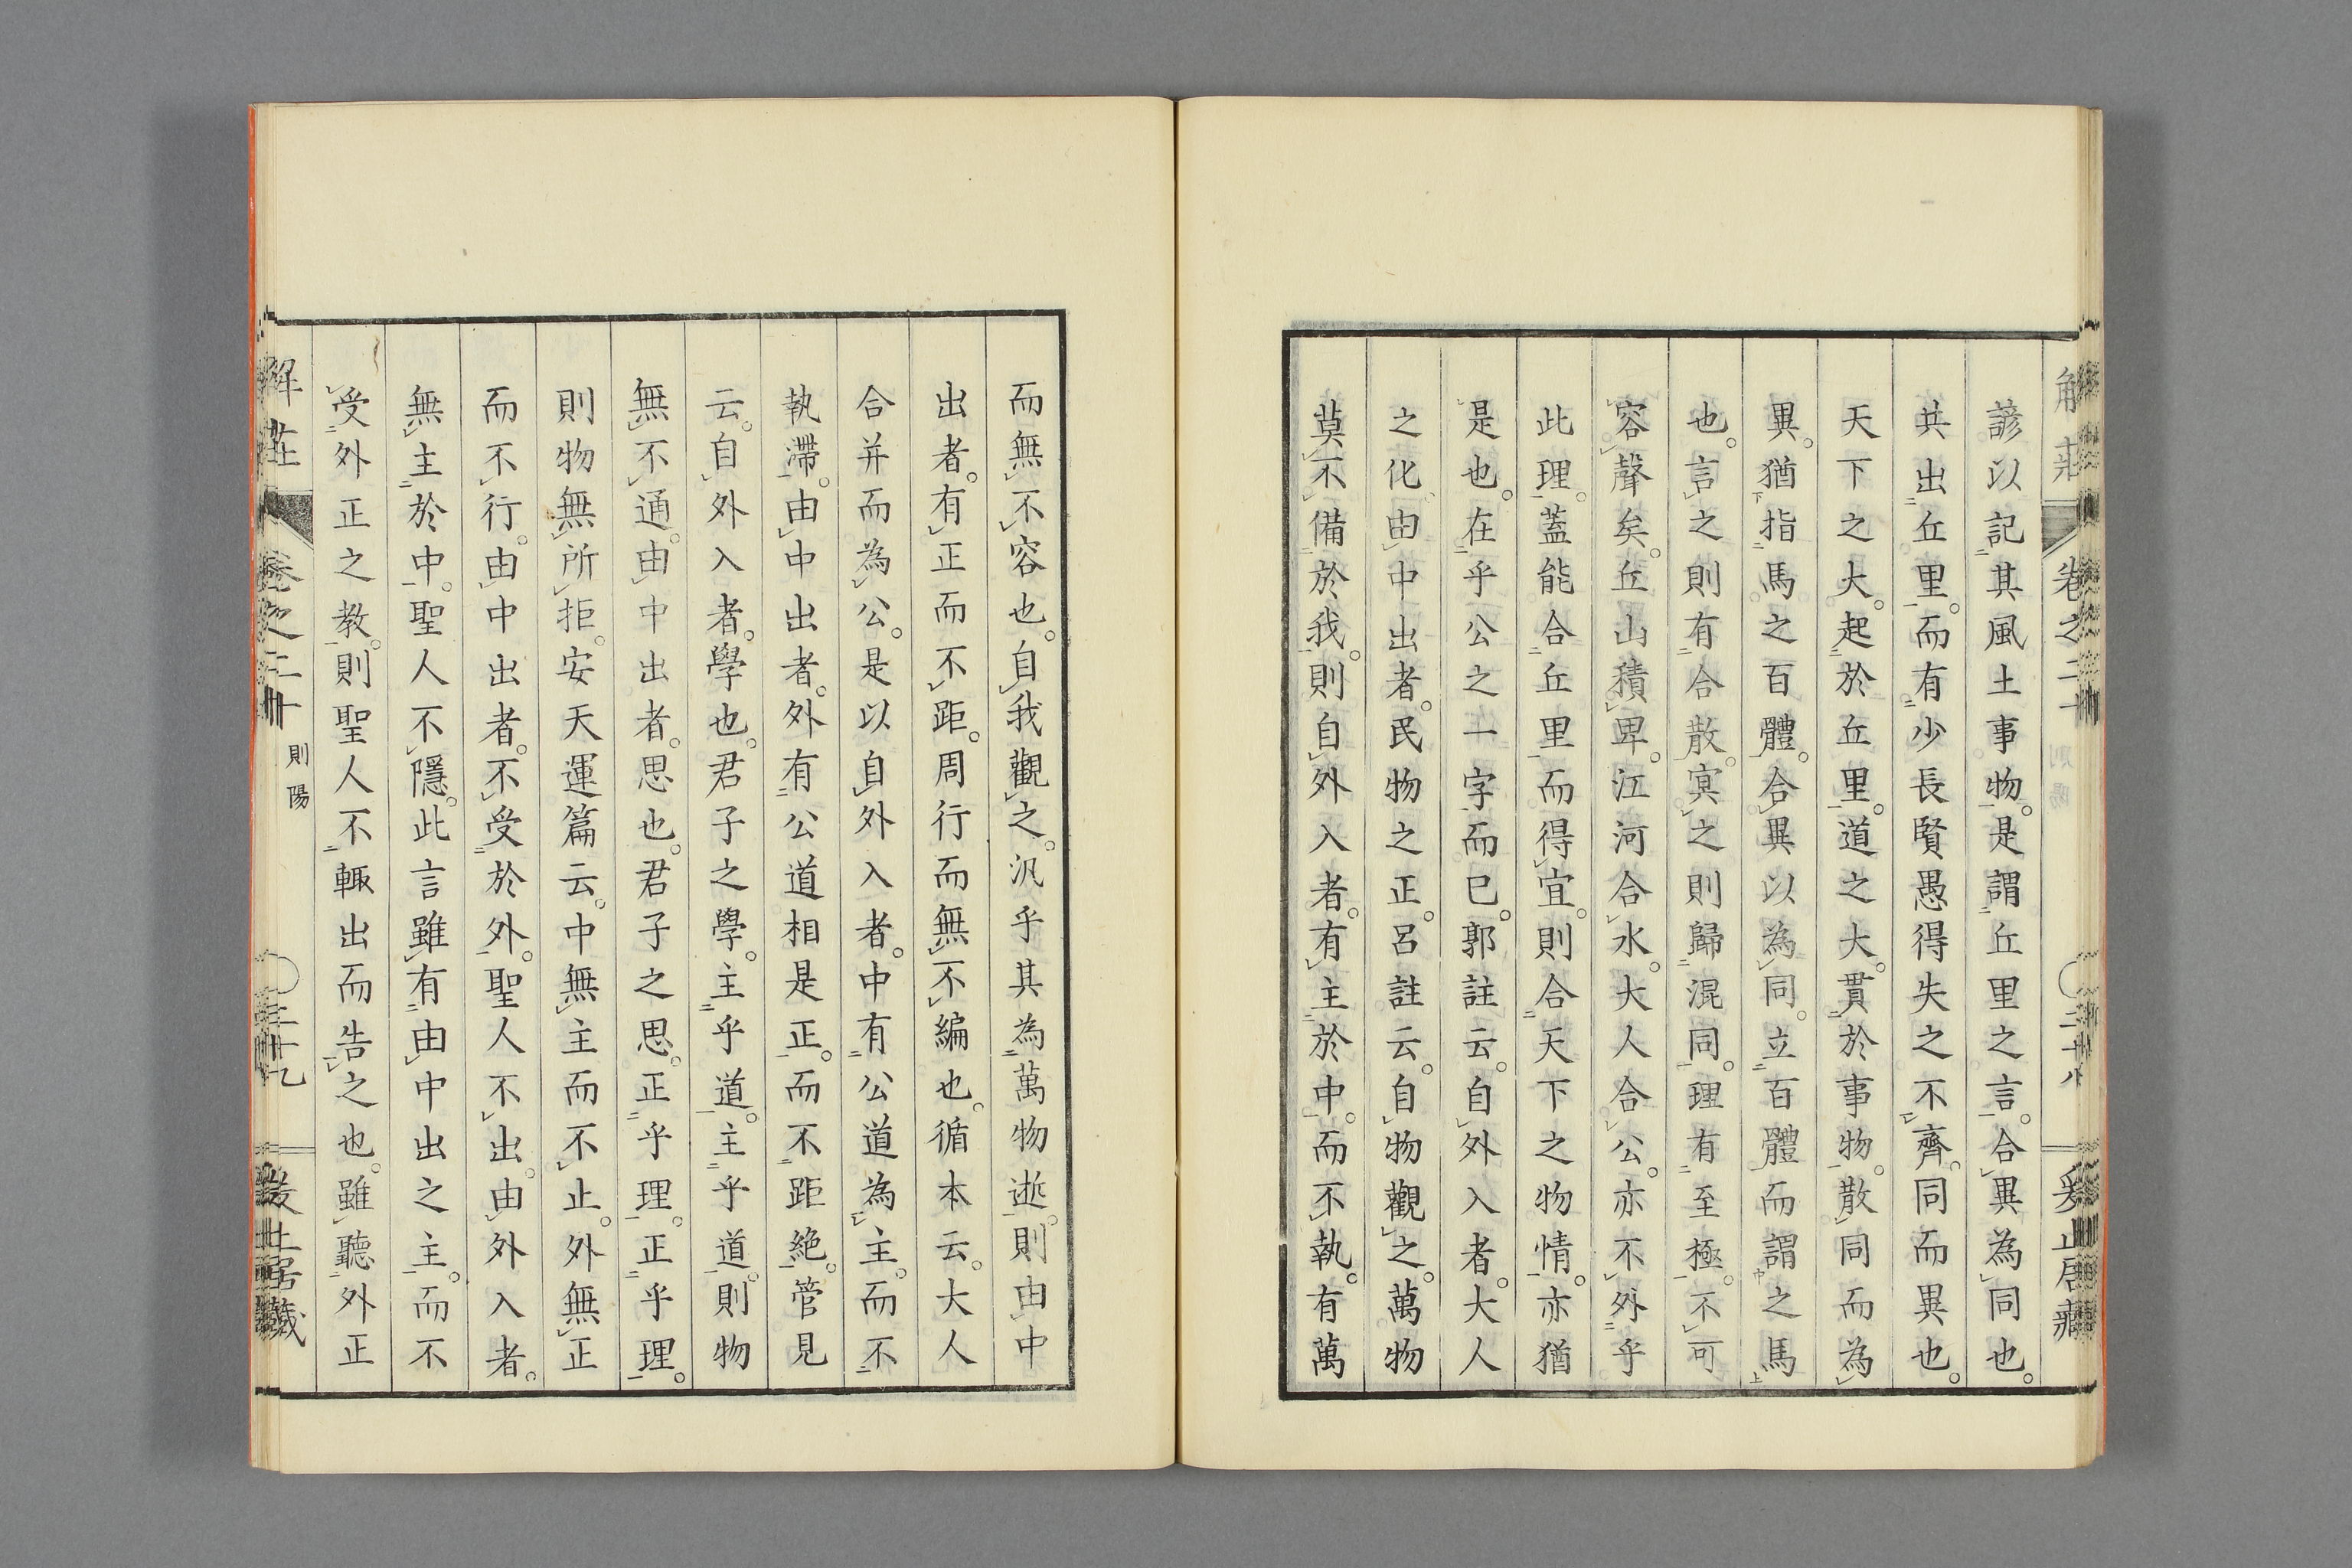 諺以記其風土事物。是謂丘里之言。合異為同也。
共出丘里。而有少長賢愚得失之不齊。同而異也。
天下之大。起於丘里。道之大。貫於事物。散同而為
異。猶指馬之百體。合異以為同。立百體而謂之馬
也。言之則有合散。㝠之則歸混同。理有至極。不可
容聲矣。丘山積𤰞。江河合水。大人合公。亦不外乎
此理。蓋能合丘里而得宜。則合天下之物情。亦猶
是也。在乎公之一字而已。郭註云。自外入者。大人
之化。由中出者。民物之正。呂註云。自物觀之。萬物
莫不備於我。則自外入者。有主於中。而不執。有萬
而無不容也。自我觀之。汎乎其為萬物逝。則由中
出者。有正而不距。周行而無不編也。循本云。大人
合并而為公。是以自外入者。中有公道為主。而不
執滯。由中出者。外有公道相是正。而不距絶。管見
云。自外入者。學也。君子之學。主乎道。主乎道。則物
無不通。由中出者。思也。君子之思。正乎理。正乎理。
則物無所拒。安天運篇云。中無主而不止。外無正
而不行。由中出者。不受於外。聖人不出。由外入者。
無主於中。聖人不隱。此言雖有由中出之主。而不
受外正之教。則聖人不輙出而告之也。雖聽外正
則陽